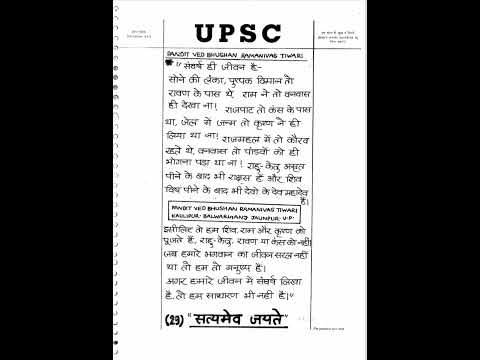 UPSC
PANDIT VED BHUSHAN RAMANIVAS TIWARI
"संघर्ष ही जीवन है-
सोने की लंका, पुष्पक विमान तो
रावण के पास थे, राम ने तो वनवास
ही देखा ना! राजपाट तो कंस के पास
था, जेल में जन्म तो कृष्ण ने ही
लिया था ना! राजमहल में तो कौरव
रहते थे, वनवास तो पांडवों को ही
भोगना पड़ा था ना! राहु-केतु अमृत
पीने के बाद भी राक्षस हैं और शिव
विष पीने के बाद भी देवो के देव महादेव
हैं।
PANDIT VED BHUSHAN RAMANIVAS TIWARI
KALLIPUR-BALWARGANJ JAUNPUR-U.P.
इसीलिए तो हम शिव, राम और कृष्ण को
पूजते हैं, राहु-केतु, रावण या कंस को नहीं।
जब हमारे भगवान का जीवन सरल नहीं
था तो हम तो मनुष्य हैं।
अगर हमारे जीवन में संघर्ष लिखा
है, तो हम साधारण भी नहीं हैं।"
(29) "सत्यमेव जयते"